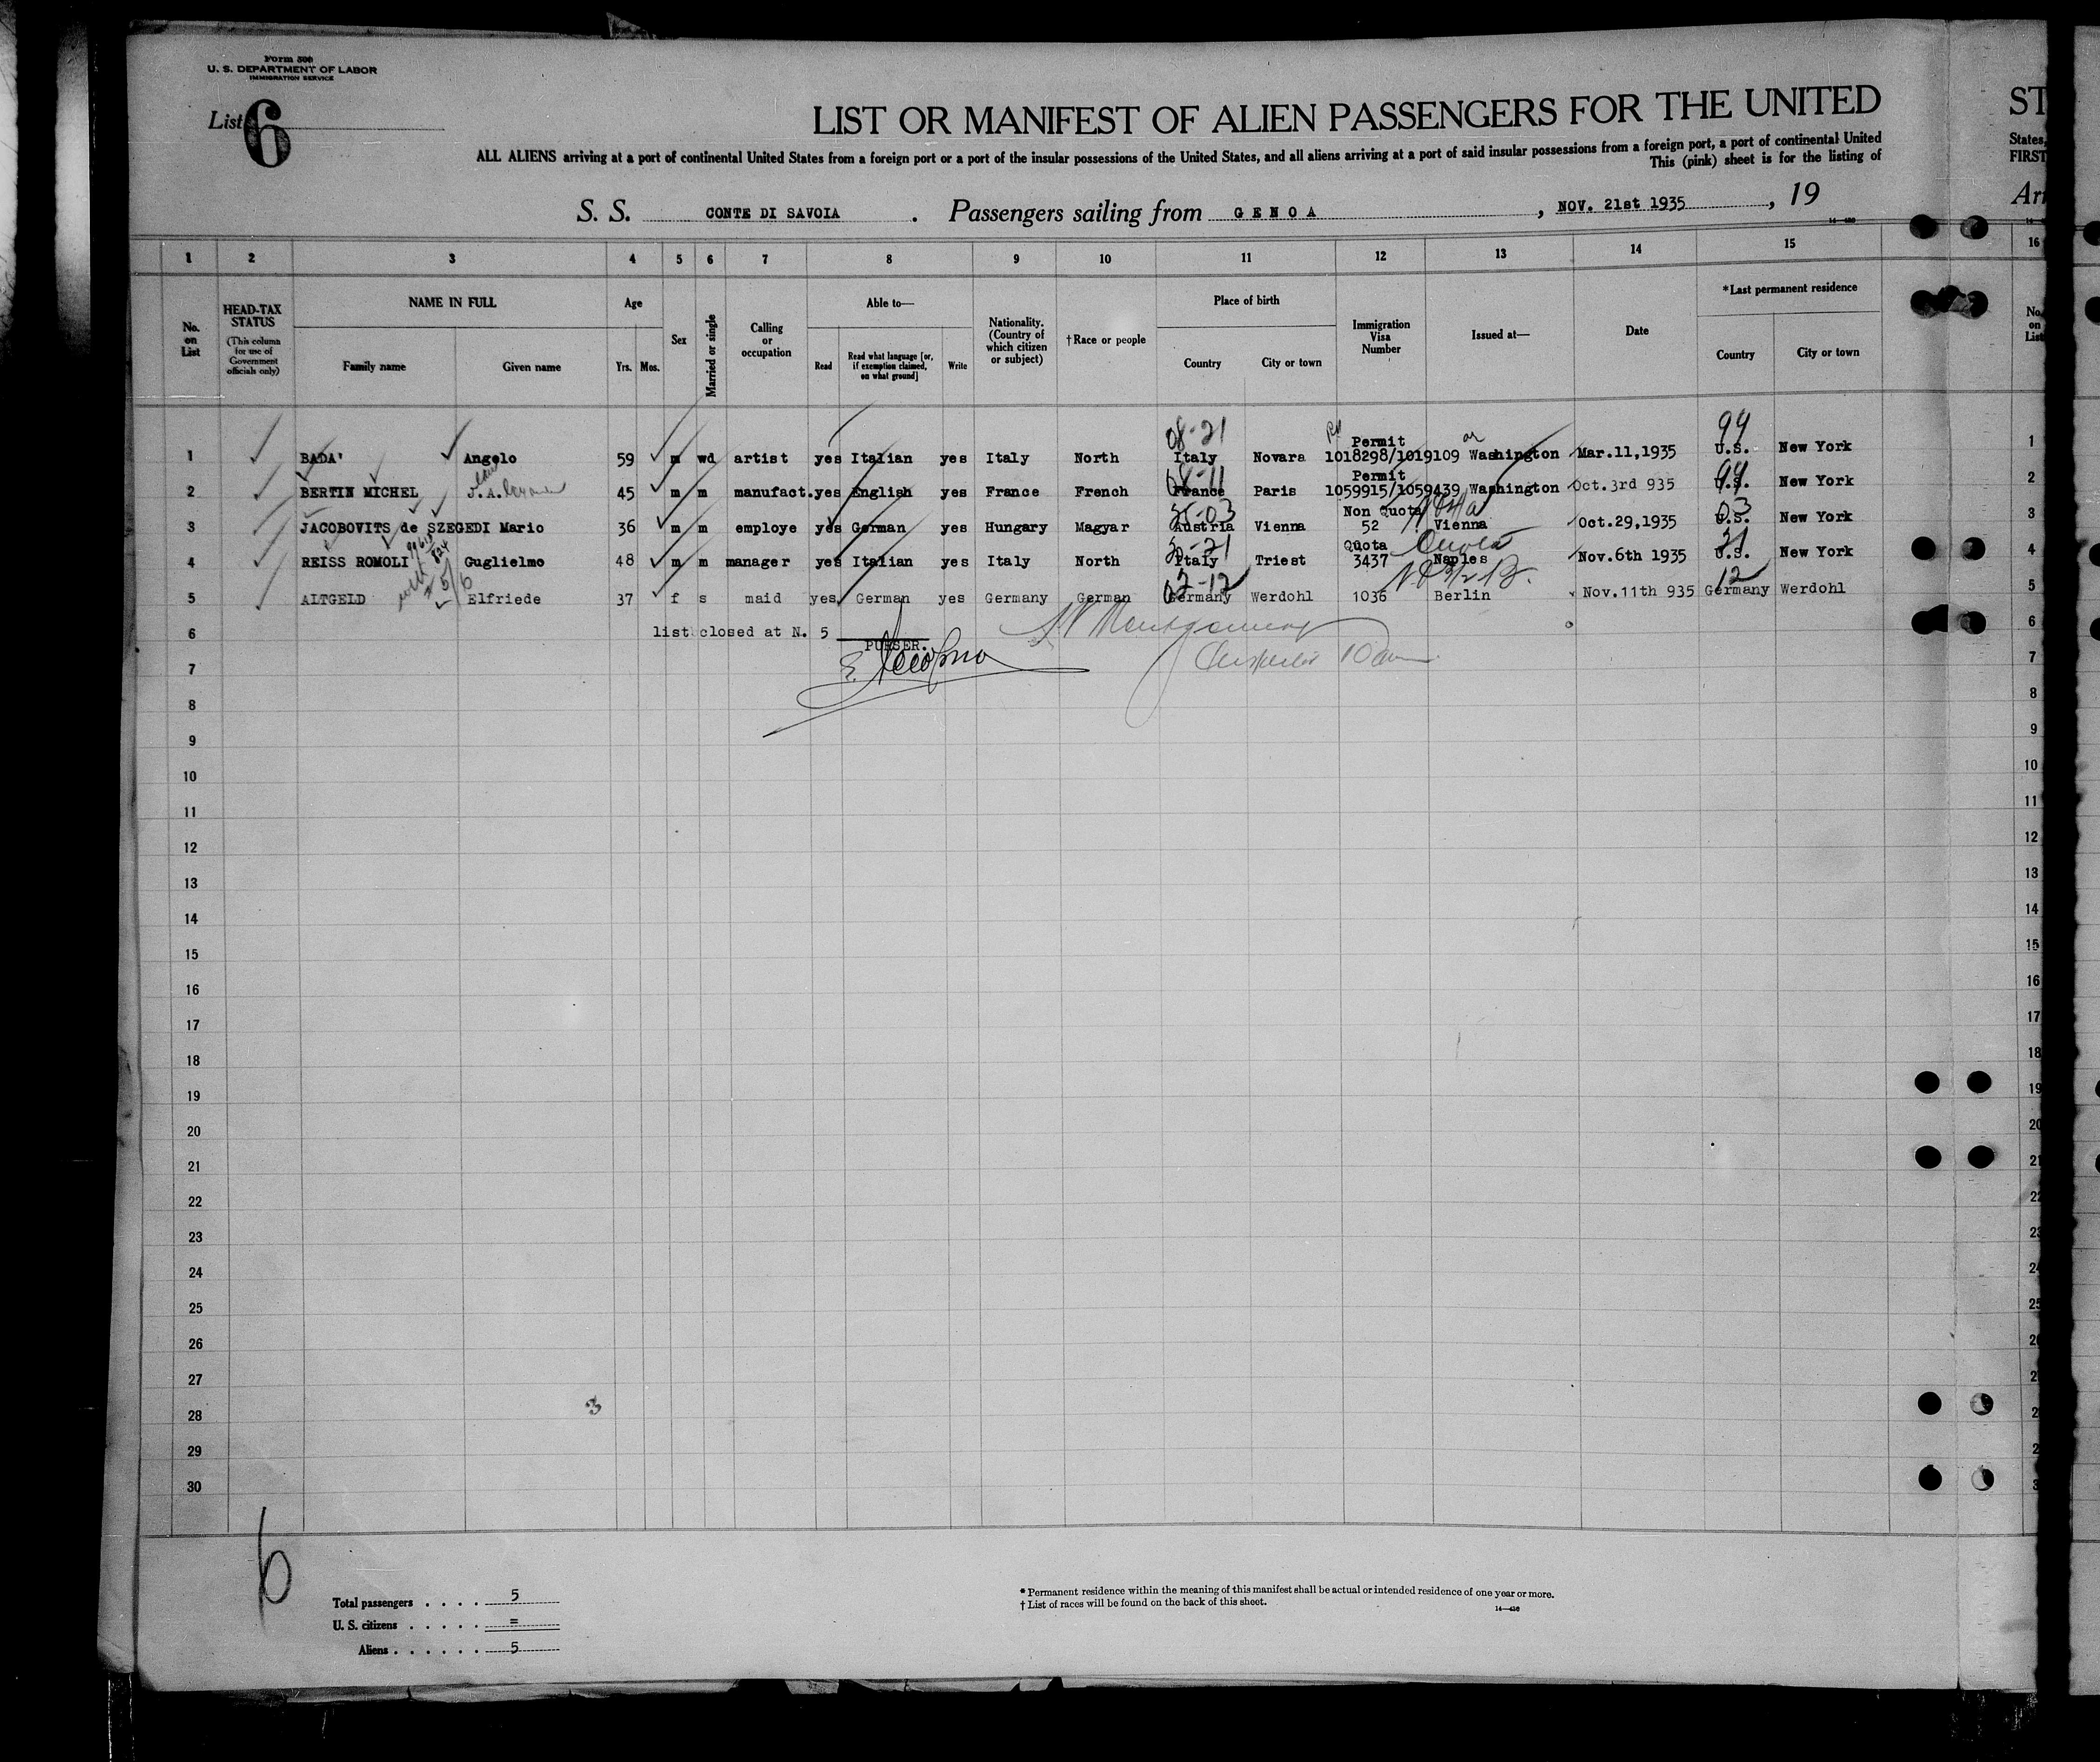 Form 500
U. S. DEPARTMENT OF LABOR
IMMIGRATION SERVICE
List 6
LIST OR MANIFEST OF ALIEN PASSENGERS FOR THE UNITED ST
ALL ALIENS arriving at a port of continental United States from a foreign port or a port of the insular possessions of the United States, and all aliens arriving at a port of said insular possessions from a foreign port, a port of continental United States,
This (pink) sheet is for the listing of FIRST
S. S. CONTE DI SAVOIA . Passengers sailing from GENOA , NOV. 21st 1935 , 19
1 2 3 4 5 6 7 8 9 10 11 12 13 14 15 16
No. on List
HEAD-TAX STATUS
(This column for use of Government officials only)
NAME IN FULL
Family name Given name
Age
Yrs. Mos.
Sex
Married or single
Calling or occupation
Able to—
Read
Read what language [or, if exemption claimed, on what ground]
Write
Nationality. (Country of which citizen or subject)
†Race or people
Place of birth
Country City or town
Immigration Visa Number
Issued at—
Date
*Last permanent residence
Country City or town
No. on List
08-21 99
1 BADA' Angelo 59 m wd artist yes Italian yes Italy North Italy Novara Permit 1018298/1019109 Washington Mar.11,1935 U.S. New York 1
2 BERTIN MICHEL J.A. 45 m m manufact. yes English yes France French France Paris Permit 1059915/1059439 Washington Oct.3rd 935 U.S. New York 2
3 JACOBOVITS de SZEGEDI Mario 36 m m employe yes German yes Hungary Magyar Austria Vienna Non Quota 52 Vienna Oct.29,1935 U.S. New York 3
4 REISS ROMOLI Guglielmo 48 m m manager yes Italian yes Italy North Italy Triest Quota 3437 Naples Nov.6th 1935 U.S. New York 4
5 ALTGELD Elfriede 37 f s maid yes German yes Germany German Germany Werdohl 1036 Berlin Nov.11th 935 Germany Werdohl 5
6 list closed at N. 5 6
PURSER.
7 7
8 8
9 9
10 10
11 11
12 12
13 13
14 14
15 15
16 16
17 17
18 18
19 19
20 20
21 21
22 22
23 23
24 24
25 25
26 26
27 27
28 3 28
29 29
30 30
6
Total passengers . . . . 5
U. S. citizens . . . . . =
Aliens . . . . . . 5
* Permanent residence within the meaning of this manifest shall be actual or intended residence of one year or more.
† List of races will be found on the back of this sheet.